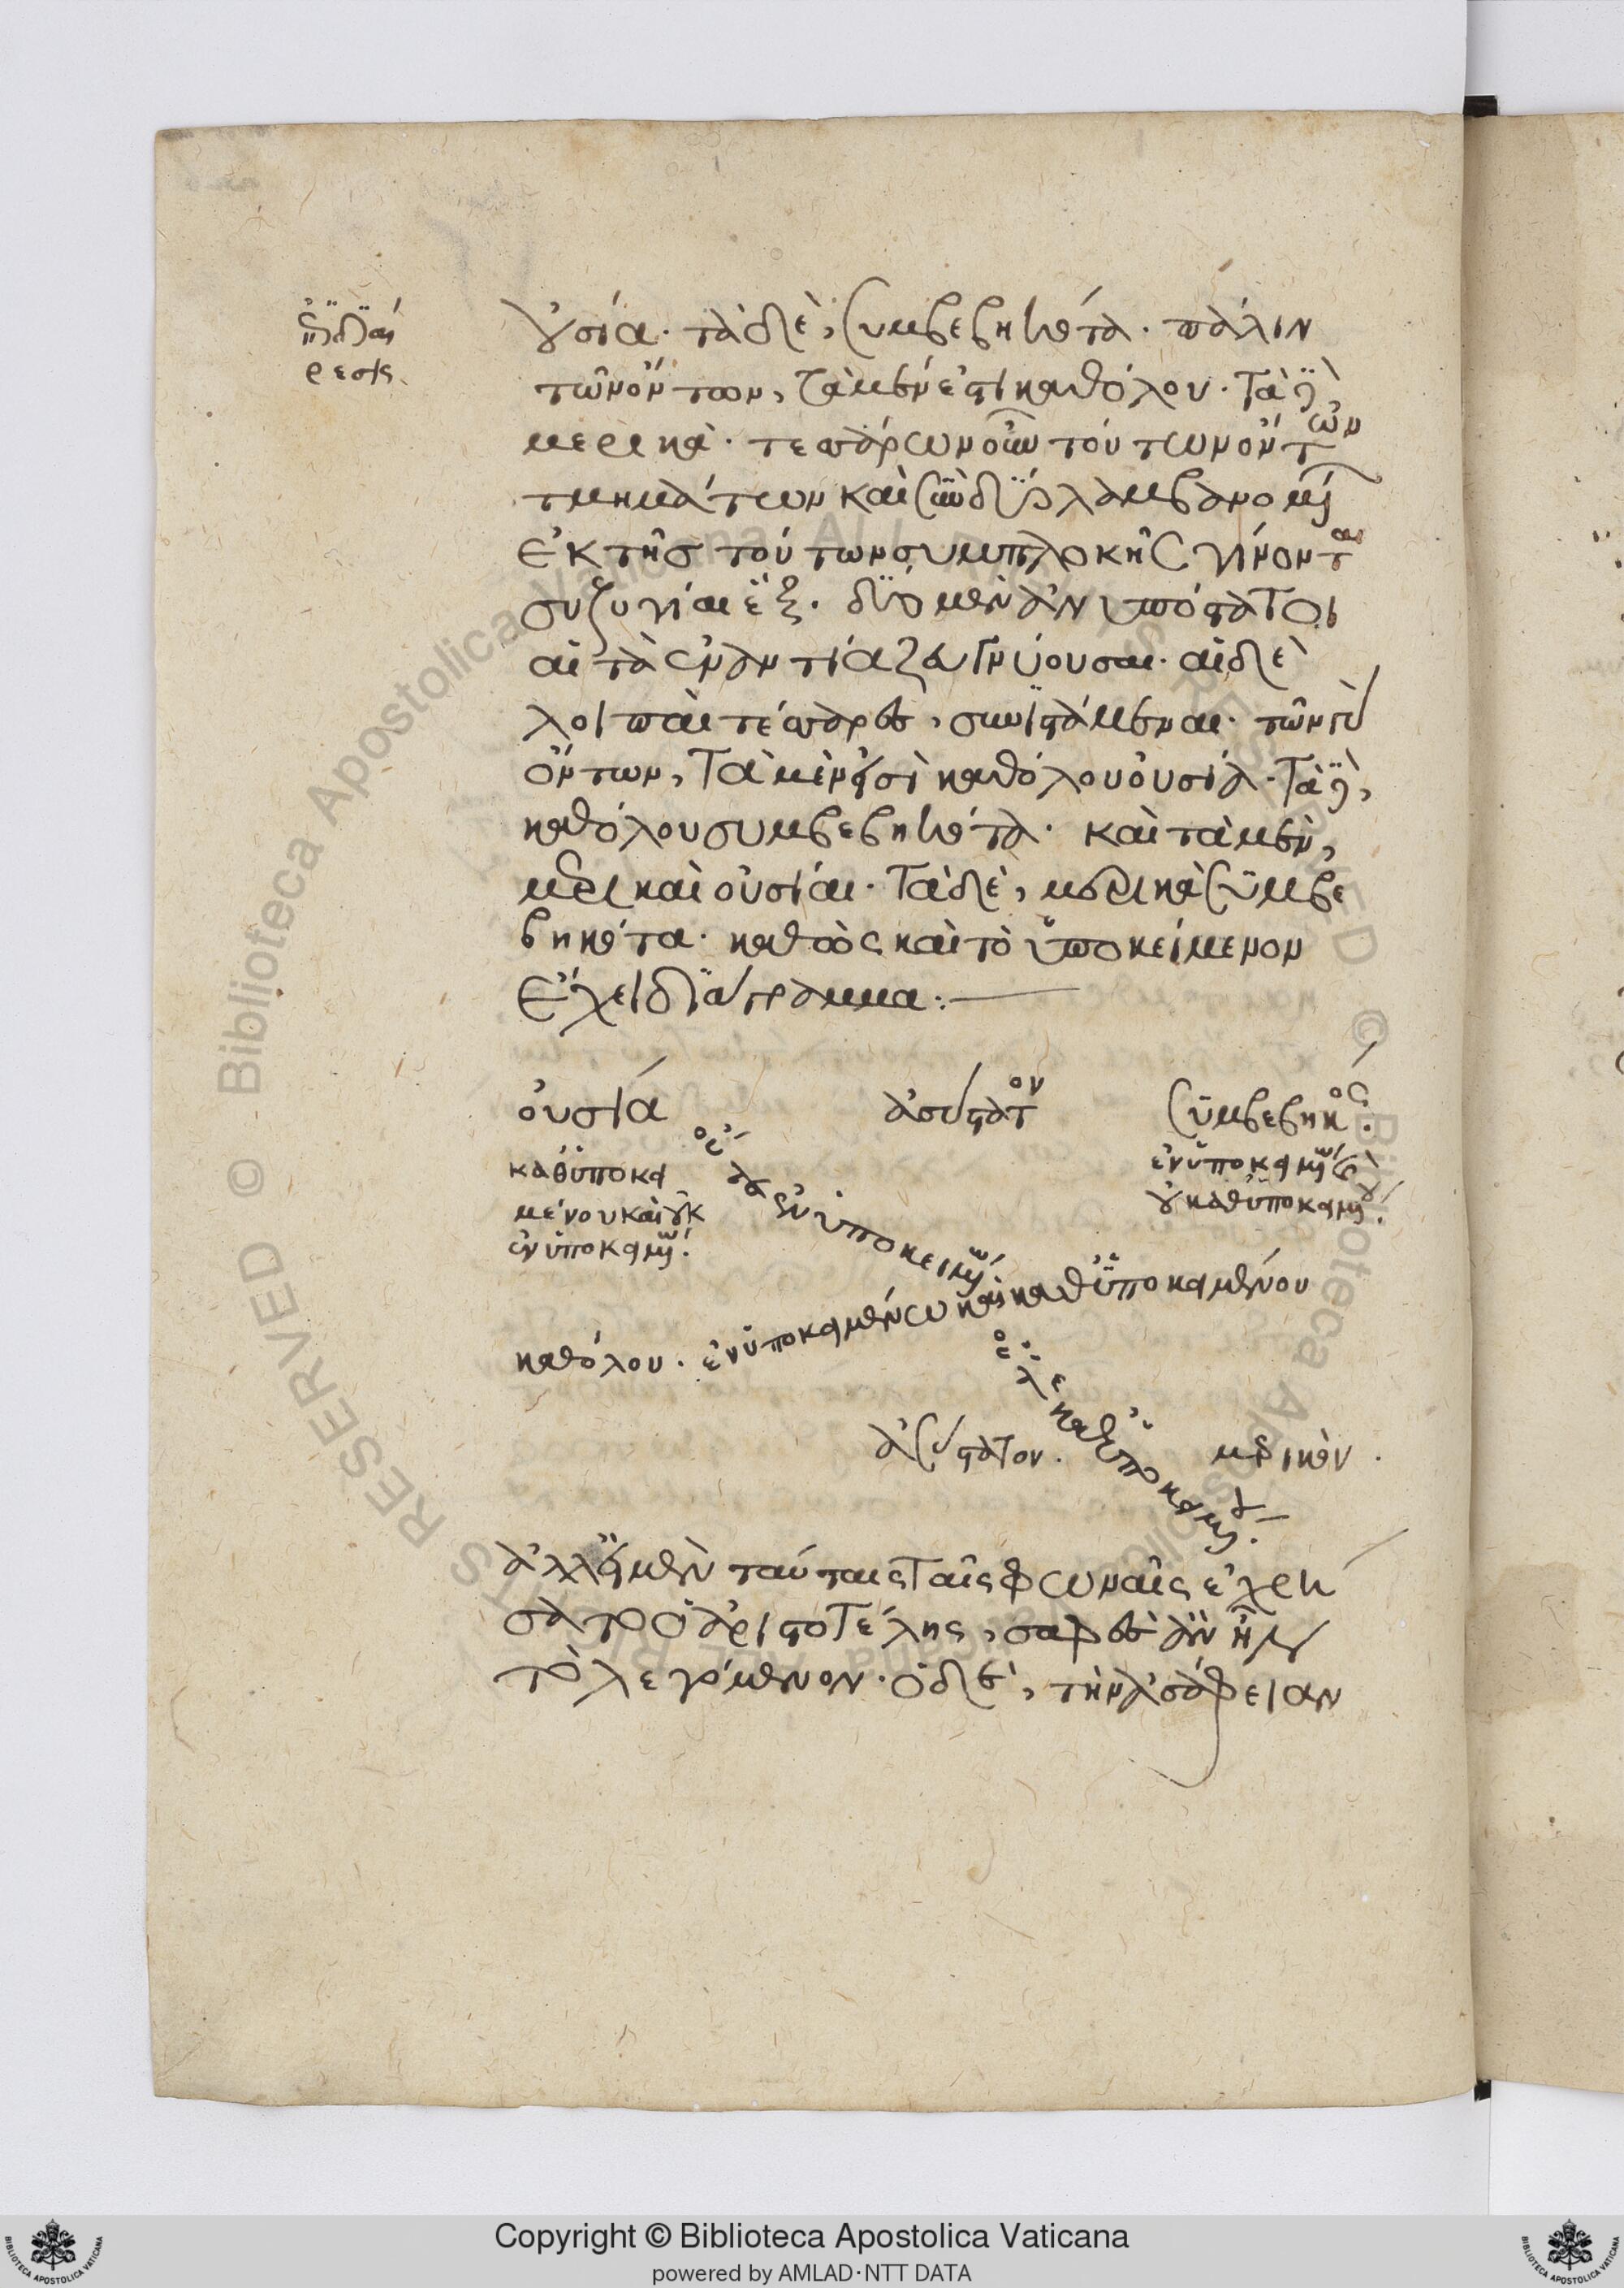 ἐπιδιαί
ρεσις.
οὐσία· τὰ δὲ, συμβεβηκότα· πάλιν
τῶν ὄντων, τὰ μέν ἐστι καθόλου· τὰ δὲ
μερικά· τεσσάρων οὖν τούτων ὄντων
τμημάτων καὶ σὺν δύο λαμβανομένων
ἐκ τῆς τούτων συμπλοκῆς γίνονται
συζυγίαι ἕξ· δύο μὲν ἀνυπόστατοι
αἱ τὰ ἐναντία ζευγνύουσαι· αἱ δὲ
λοιπαὶ τέσσαρες, συνιστάμεναι· τῶν γὰρ
ὄντων, τὰ μέν εἰσι καθόλου οὐσίαι· τὰ δὲ,
καθόλου συμβεβηκότα· καὶ τὰ μὲν,
μερικαὶ οὐσίαι· τὰ δὲ, μερικὰ συμβε
βηκότα· καθὼς καὶ τὸ ὑποκείμενον
ἔχει διάγραμμα:
οὐσία ἀσύστατον συμβεβηκός:
καθ ὑποκει
μένου καὶ οὐκ
ἐν ὑποκειμένῳ:
ἐν ὑποκειμένῳ καὶ
οὐ καθ ὑποκειμένου:
ἐν ὑποκειμένῳ
καθόλου· ἐν ὑποκειμένῳ καὶ καθ ὑποκειμένου
καθ ὑποκειμένου:
ἀσύστατον. μερικόν.
ἀλλ εἰ μὲν ταύταις ταῖς φωναῖς ἐχρή
σατο ὁ ἀριστοτέλης, σαφὲς ἂν ἦν
τὸ λεγόμενον· ὁ δὲ, τὴν ἀσάφειαν